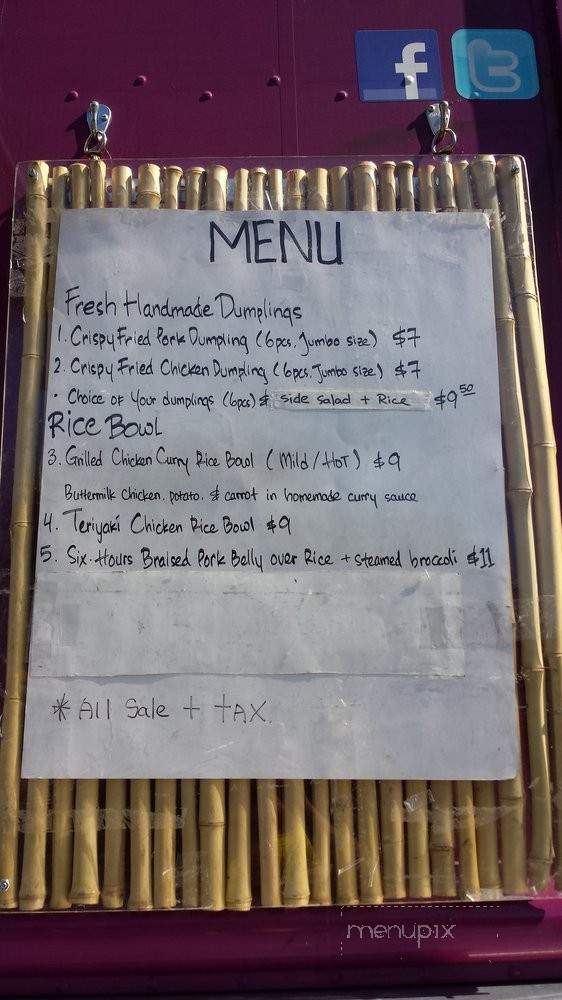 f
t
MENU
Fresh Handmade Dumplings
1. Crispy Fried Pork Dumpling (6pcs. Jumbo size) $7
2. Crispy Fried Chicken Dumpling (6pcs. Jumbo size) $7
• Choice of your dumplings (6pcs) & side salad + Rice $9.50
Rice Bowl
3. Grilled Chicken Curry Rice Bowl (Mild/HoT) $9
Buttermilk chicken, potato, & carrot in homemade curry sauce
4. Teriyaki Chicken Rice Bowl $9
5. Six-Hours Braised Pork Belly over Rice + steamed broccoli $11
* All Sale + TAX.
menupix